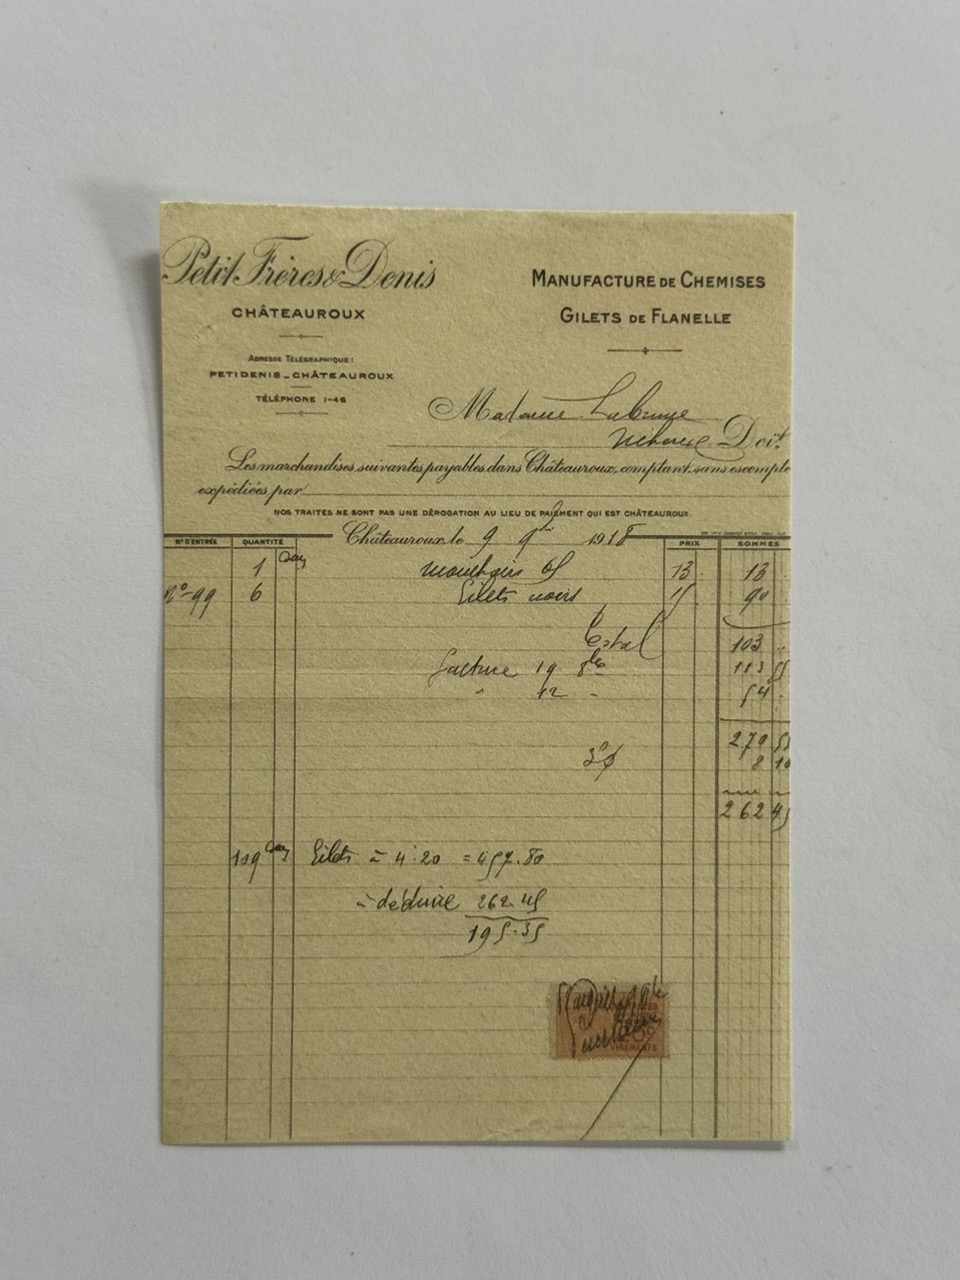 Petit Frères & Denis
CHÂTEAUROUX
ADRESSE TÉLÉGRAPHIQUE:
PETIDENIS_CHÂTEAUROUX
TÉLÉPHONE 1-46
MANUFACTURE DE CHEMISES
GILETS DE FLANELLE
Madame Labrune
Doit
Les marchandises suivantes payables dans Châteauroux, comptant, sans escompte
expédiées par
NOS TRAITES NE SONT PAS UNE DÉROGATION AU LIEU DE PAIEMENT QUI EST CHÂTEAUROUX.
Châteauroux, le 9 9bre 1918
N° D'ENTRÉE QUANTITÉ PRIX SOMMES
1 mouchoirs 13 13
N°-99 6 Gilets noirs 15 90
Total 103
facture 19 113 55
" 12 - 54
270 55
3% 8 10
262 45
109 Gilets à 4.20 = 457.80
à déduire 262.45
195.35